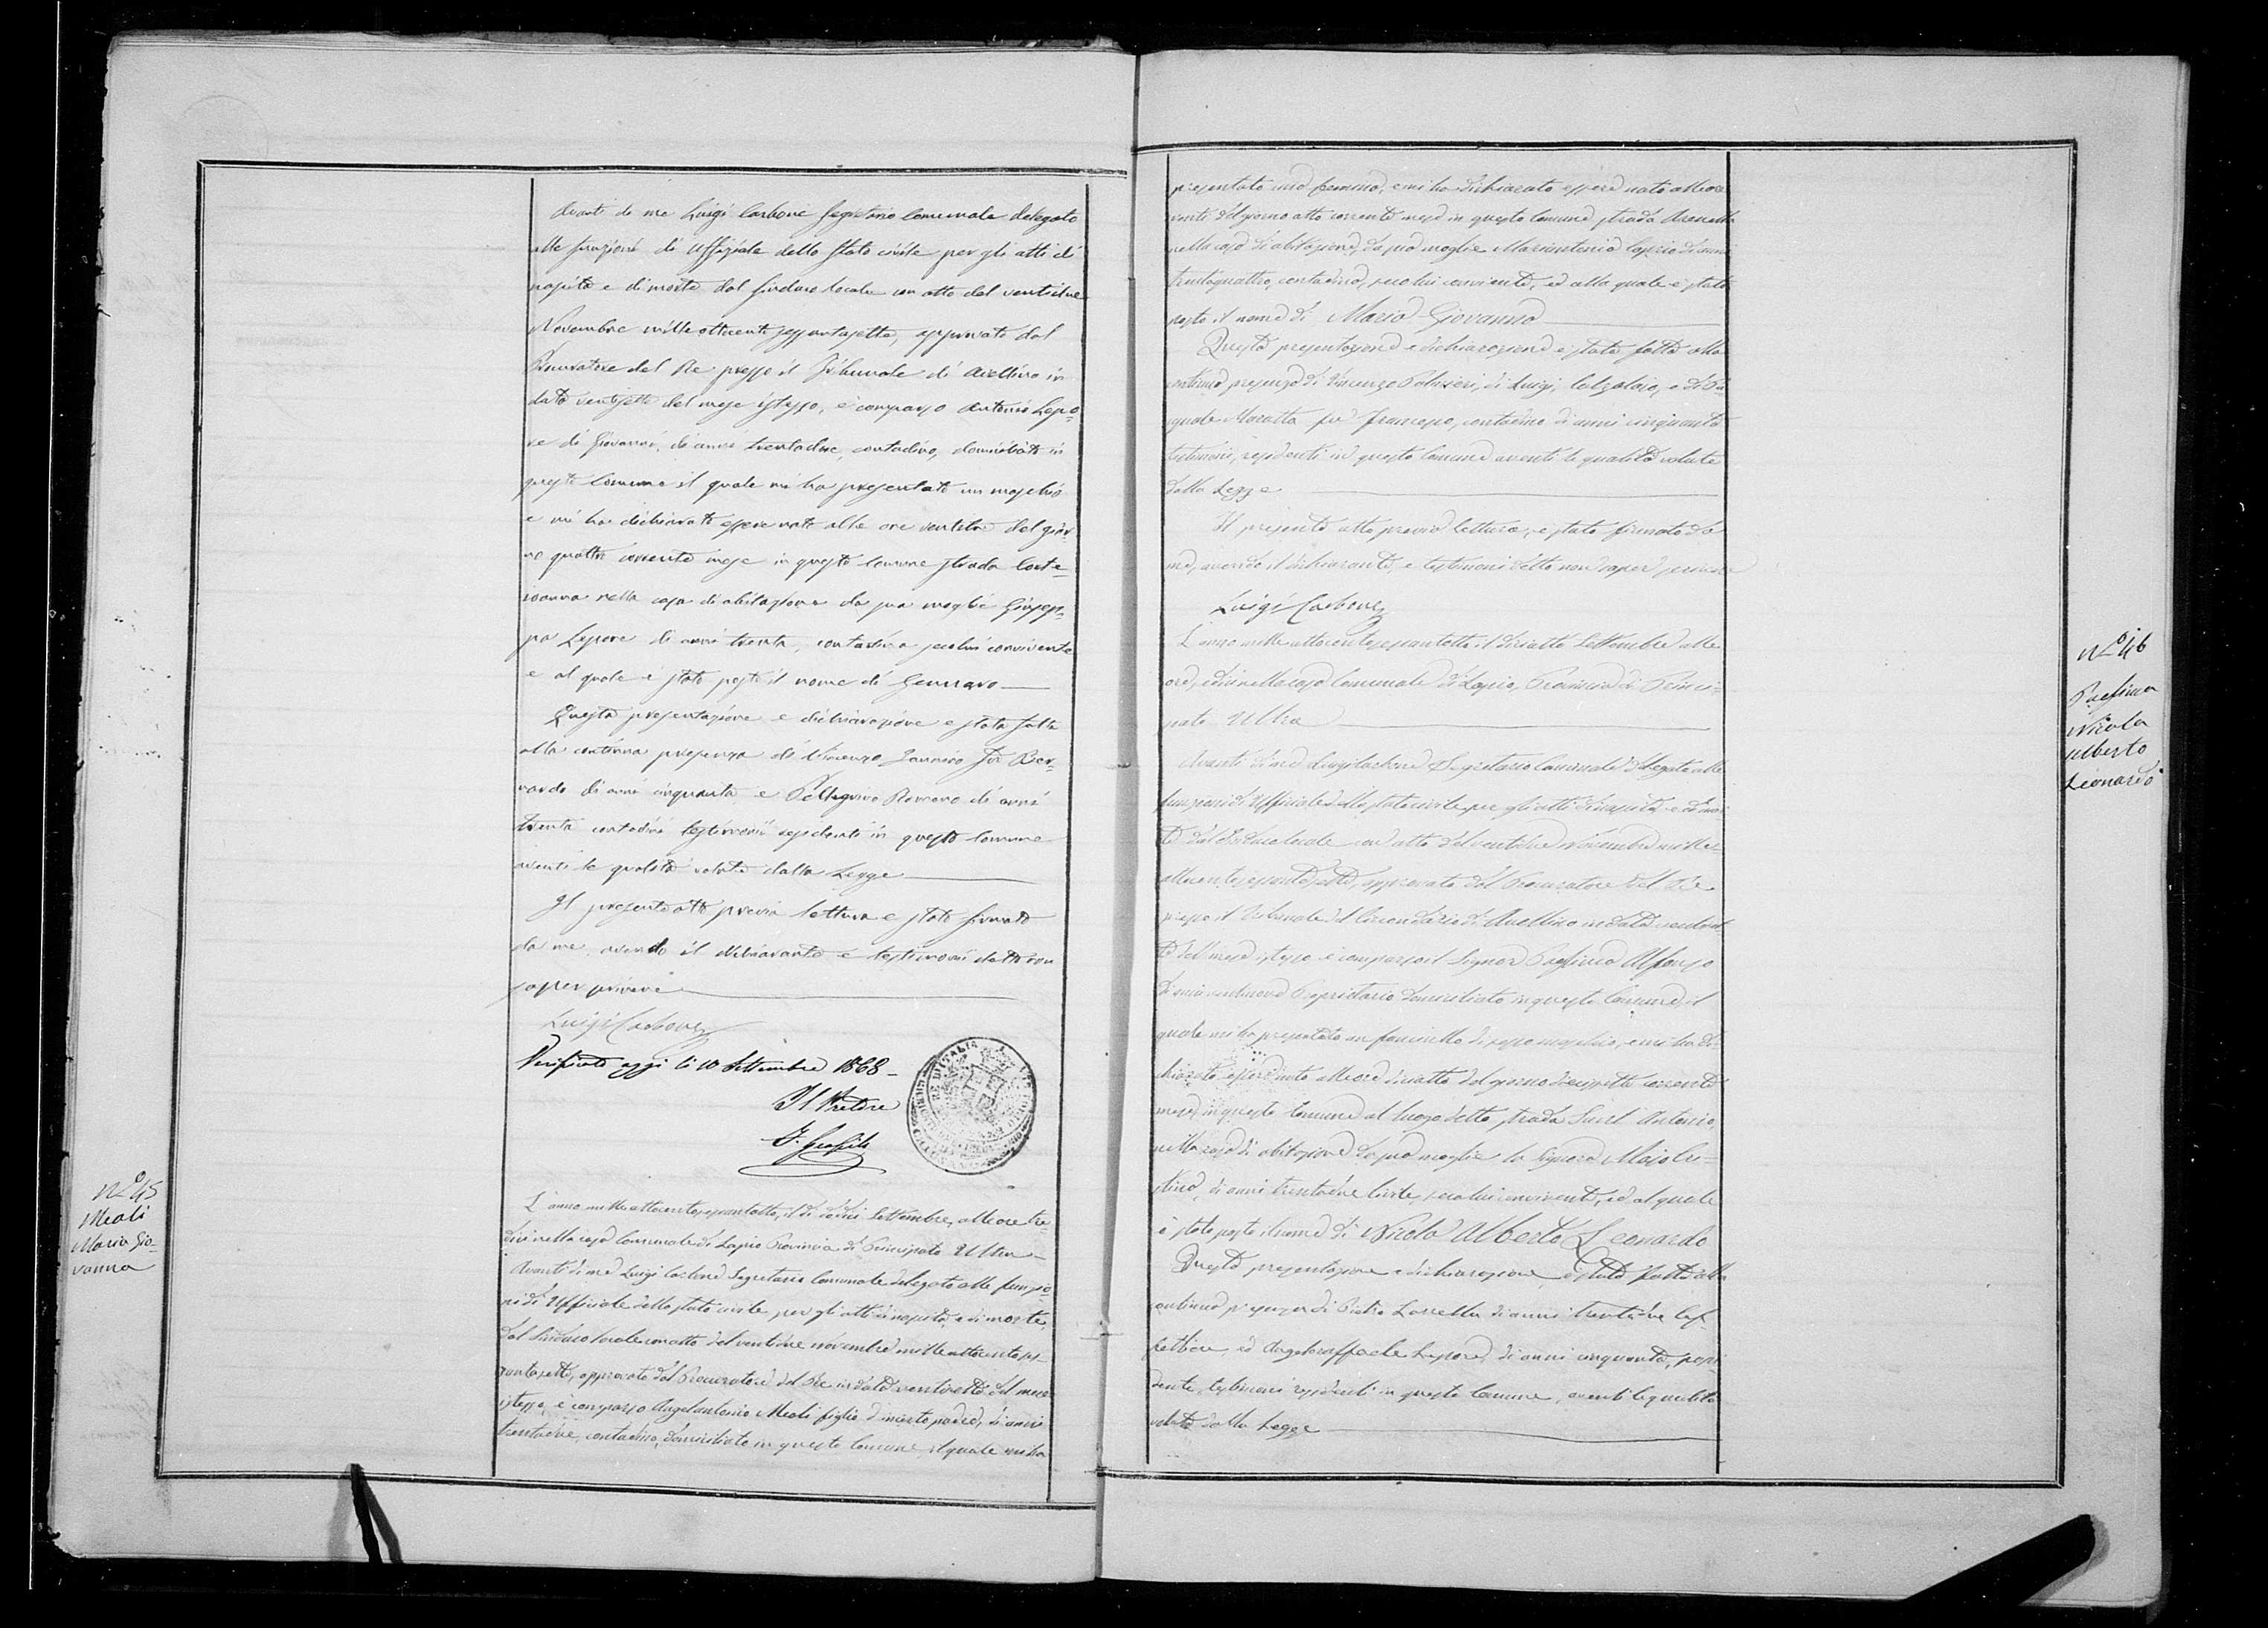 Avanti di me Luigi Carbone Segretario Comunale delegato
alle funzioni di Uffiziale dello Stato civile per gli atti di
nascita e di morte dal Sindaco locale con atto del ventidue
Novembre milleottocento sessantasette, approvato dal
Procuratore del Re presso il Tribunale di Avellino in
data ventisette del mese istesso, è comparso Antonio Lepo=
re di Giovanni, di anni trentadue, contadino, domiciliato in
questo Comune il quale mi ha presentato un maschio
e mi ha dichiarato essere nato alle ore ventitre del gior=
no quattro corrente mese in questo Comune strada
nella casa di abitazione da sua moglie Giusep=
pa Lepore di anni trenta, contadina secolui convivente
e al quale è stato posto il nome di Gennaro
Questa presentazione e dichiarazione è stata fatta
alla continua presenza di Vincenzo Iannino fu Ber=
nardo di anni cinquanta e Pellegrino Romano di anni
trenta contadini testimoni residenti in questo Comune
aventi le qualità volute dalla Legge
Il presente atto previa lettura è stato firmato
da me, avendo il dichiarante e testimoni detto non
saper scrivere
Luigi Carbone
Verificato oggi li 10 Settembre 1868
Il Pretore
N.° 45
Meoli
Maria Gio=
vanna
L'anno milleottocentosessantotto, il dì dodici Settembre, alle ore tre=
dici nella casa Comunale di Lapio Provincia di Principato Ultra
Avanti di me Luigi Carbone Segretario Comunale delegato alle funzio=
ni di Uffiziale dello stato civile per gli atti di nascita, e di morte,
dal Sindaco locale con atto del ventidue novembre milleottocentoses=
santasette, approvato dal Procuratore del Re in data ventisette del mese
istesso, è comparso Angelantonio Meoli figlio d'incerto padre, di anni
trentadue, contadino, domiciliato in questo Comune il quale mi ha
presentato una femina, e mi ha dichiarato essere nata alle ore
venti del giorno otto corrente mese in questo Comune strada
nella casa di abitazione, da sua moglie Mariantonia di anni
trentaquattro, contadina, secolui convivente, ed alla quale è stato
posto il nome di Maria Giovanna
Questa presentazione e dichiarazione è stata fatta alla
continua presenza di Vincenzo di Luigi, Calzolaio, e di Pa=
squale fu Francesco, contadino di anni cinquanta
testimoni, residenti in questo Comune aventi le qualità volute
dalla Legge
Il presente atto previa lettura, è stato firmato da
me, avendo il dichiarante, e testimoni detto non saper scrivere
Luigi Carbone
N.° 46
Nicola
Alberto
Leonardo
L'anno milleottocentosessantotto, il diciotto Settembre alle
ore nella casa Comunale di Lapio, Provincia di Princi=
pato Ultra
Avanti di me Luigi Carbone Segretario Comunale delegato alle
funzioni di Ufficiale dello stato civile per gli atti di nascita, e di mor=
te dal Sindaco locale con atto del ventidue Novembre mille=
ottocentosessantasette, approvato dal Procuratore del Re
presso il Tribunale del Circondario di Avellino in data ventiset=
te del mese istesso è comparso il Signor Alfonso
di anni Proprietario domiciliato in questo Comune, il
quale mi ha presentato un fanciullo di sesso maschio, e mi ha di=
chiarato essere nato alle ore diciotto del giorno diecisette corrente
mese in questo Comune al luogo detto strada Sant Antonio,
nella casa di abitazione da sua moglie la Signora
di anni trentadue Civile, secolui convivente, ed al quale
è stato posto il nome di Nicola Alberto Leonardo
Questa presentazione e dichiarazione è stata fatta alla
continua presenza di Pietro di anni trentadue
ed Angeloraffaele Lepore, di anni cinquanta, possi=
dente, testimoni residenti in questo Comune, aventi le qualità
volute dalla Legge